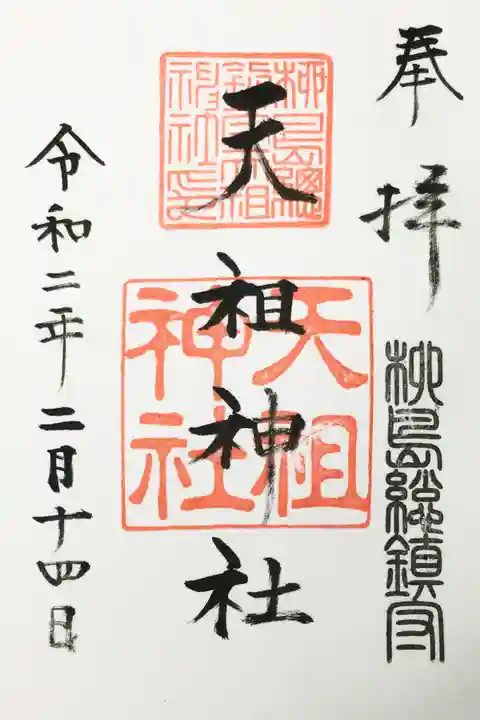 奉拝
柳島総鎮守
天祖神社
柳島総
鎮守天祖
神社之印
天祖
神社
令和二年二月十四日